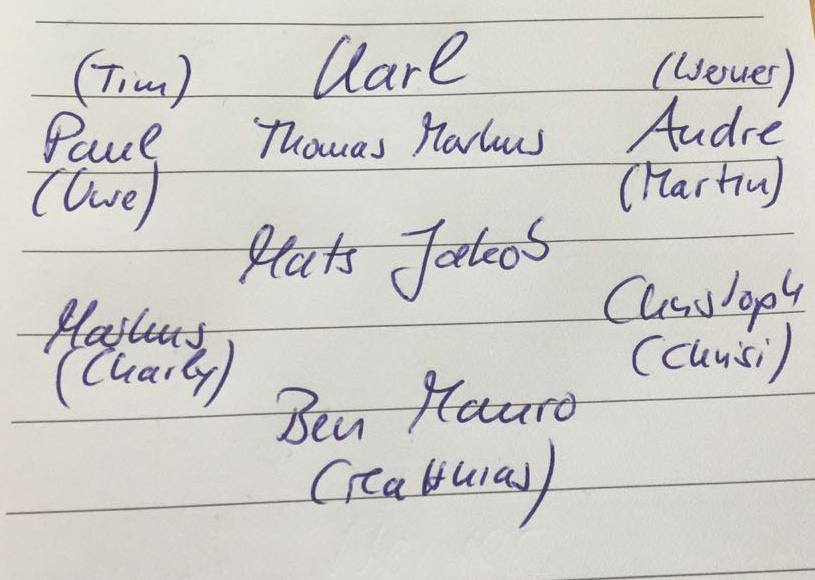 (Tim) Karl (Werner)
Paul Thomas Markus Andre
(Uwe) (Martin)
Mats Jakob
Markus Christoph
(Charly) (Chrisi)
Ben Mauro
(Matthias)